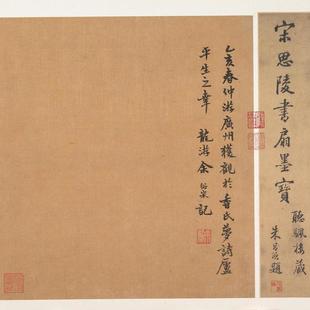 宋思陵書扇墨寶
聽颿樓藏
朱昌頤題
乙亥春仲游廣州獲觀於香氏夢詩廬
平生之幸 龍游余紹宋記